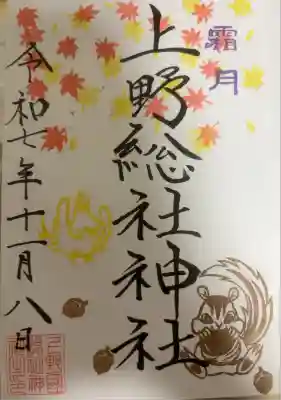 霜月
上野総社神社
令和七年十一月八日